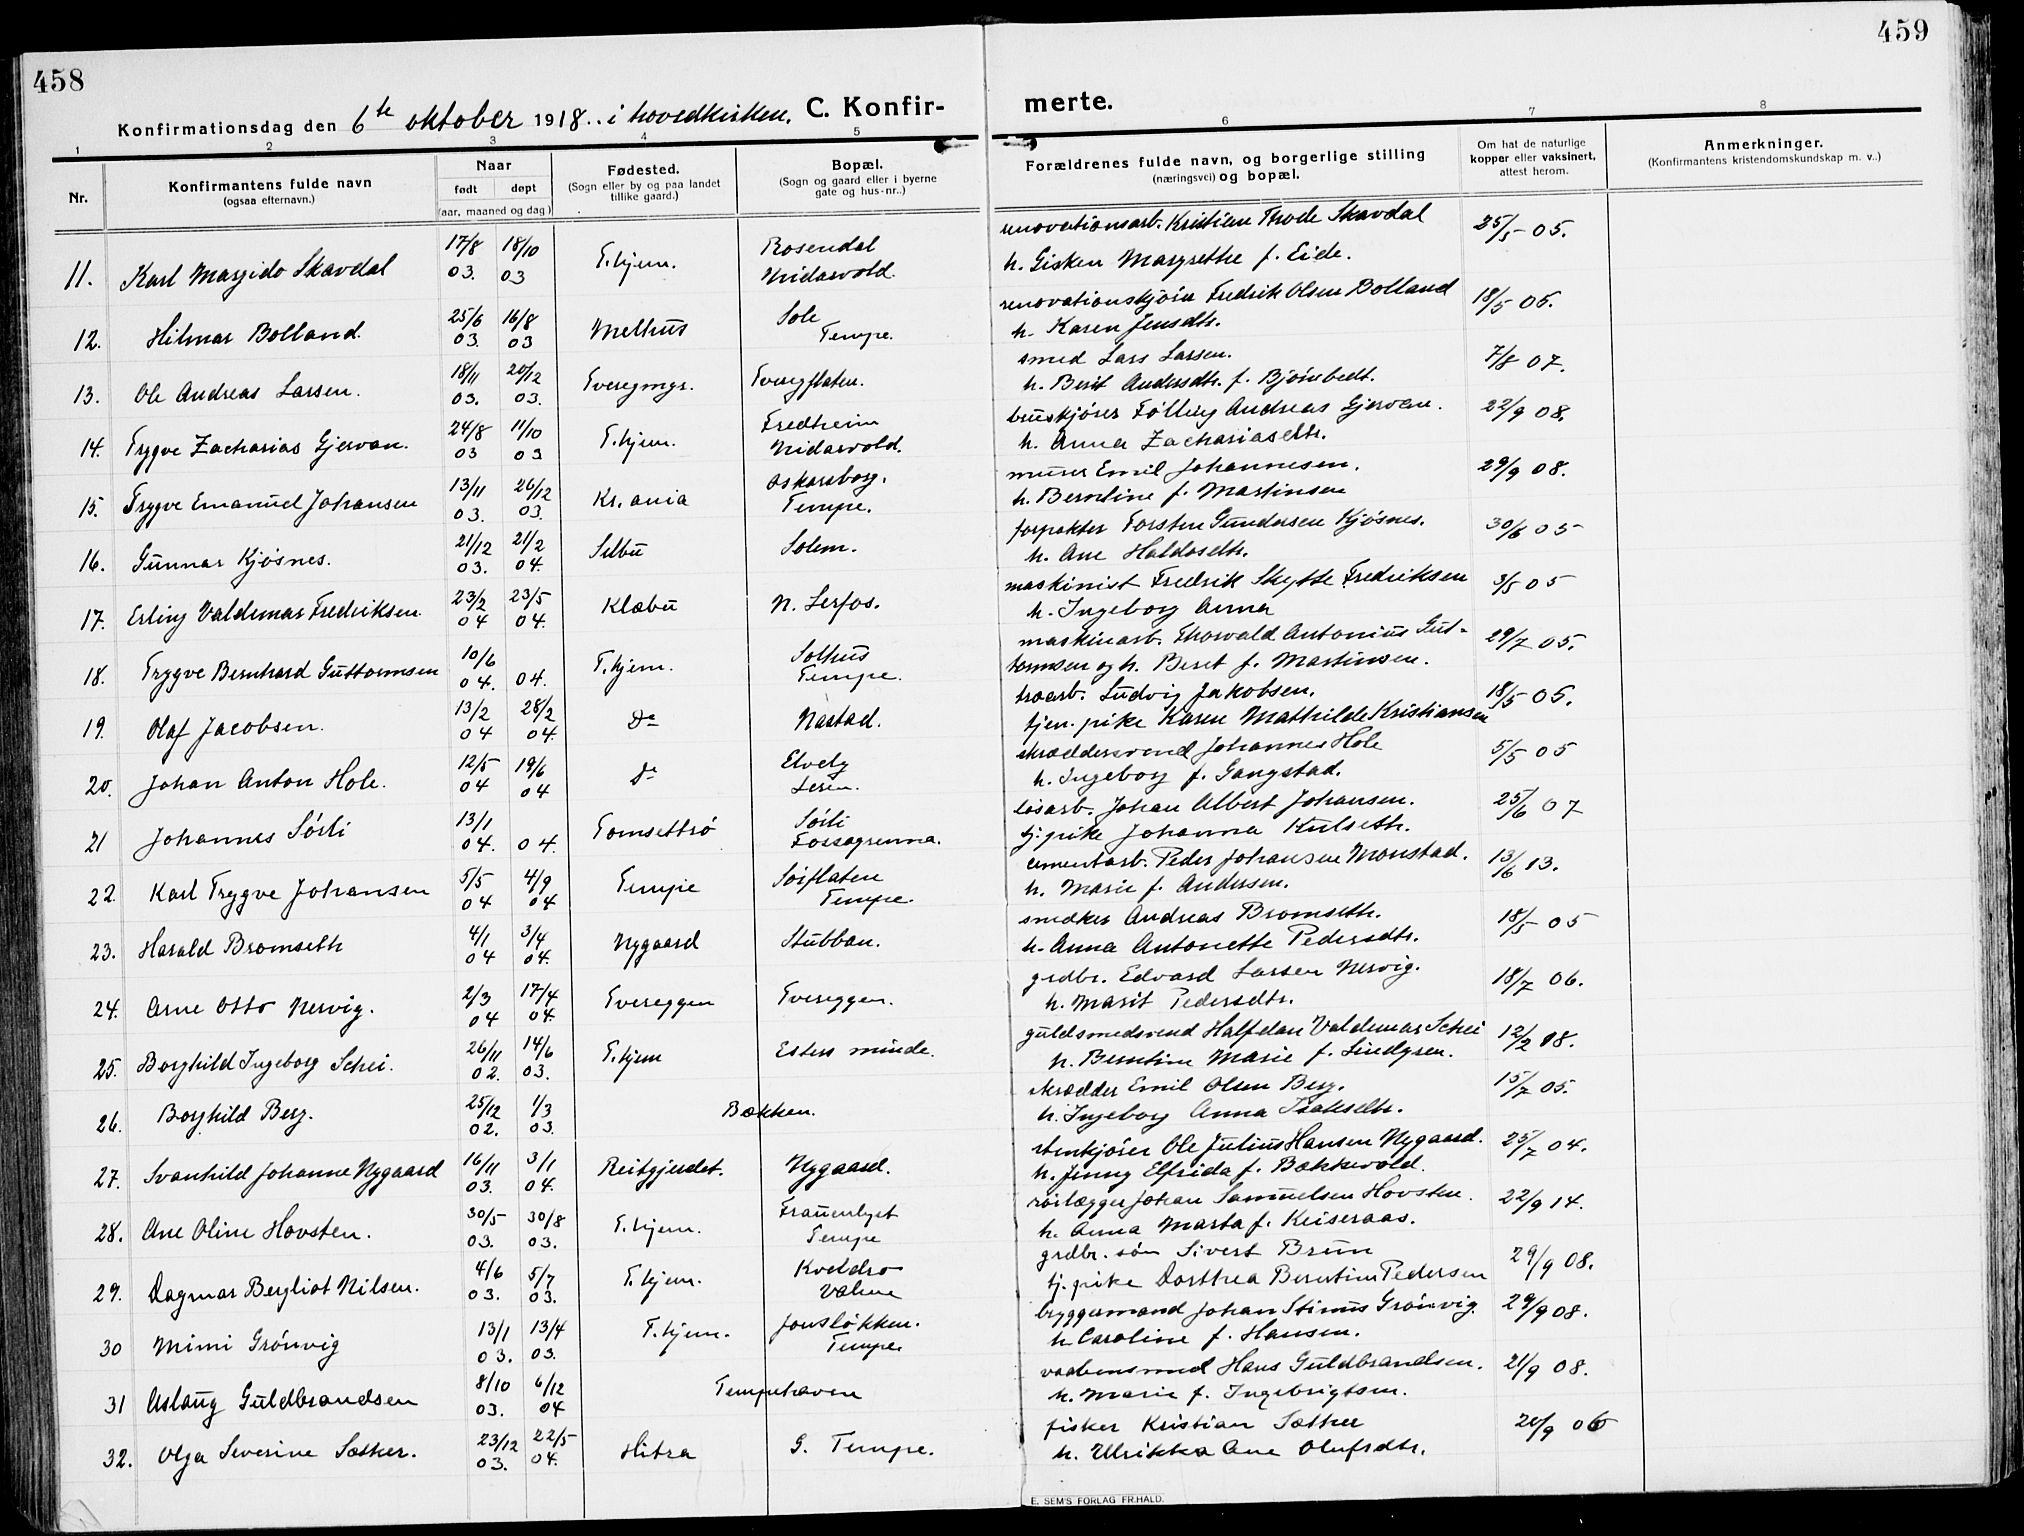 458
459
Konfirmationsdag den 6te oktober 1918.. i hovedkirken. C. Konfir-
merte.
1 2 3 4 5 6 7 8
Nr.
Konfirmantens fulde navn
(ogsaa efternavn.)
Naar
født døpt
(aar, maaned og dag)
Fødested.
(Sogn eller by og paa landet
tillike gaard.)
Bopæl.
(Sogn og gaard eller i byerne
gate og hus-nr..)
Forældrenes fulde navn, og borgerlige stilling
(næringsvei) og bopæl.
Om hat de naturlige
kopper eller vaksinert,
attest herom.
Anmerkninger.
(Konfirmantens kristendomskundskap m. v..)
17/8 18/10 Rosendal renovationsarb. Kristian Thode Skavdal 25/5 05.
11. Karl Margido Skavdal 03. 03 T.hjem. Nidarvold h. Gisken Margrethe f. Eide.
25/6 16/8 Sole renovationskjører Fredrik Olsen Bolland 18/5 05.
12. Hilmar Bolland. 03. 03 Melhus Tempe. h. Karen Jensdtr.
18/11 20/12 smed Lars Larsen. 7/8 07.
13. Ole Andreas Larsen. 03. 03. Tveregflaten. h. Berit Andersdtr. f. Bjørnbedt.
24/8 11/10 Fredheim bruskjører Følling Andreas Gjervan. 22/9 08.
14. Trygve Zacharias Gjervan. 03 03 T.hjem. Nidarvold. h. Anna Zachariasdtr.
13/11 26/12 Oskarsborg. murer Emil Johannesen. 29/9 08.
15. Trygve Emanuel Johansen 03. 03. Kr.ania Tempe. h. Berntine f. Martinsen
21/12 21/2 forpakter Torsten Gundersen Kjøsnes. 30/6 05
16. Gunnar Kjøsnes. 03. 04. Selbu Solem. h. Ane Haldosdtr.
23/2 23/5 maskinist Fredrik Skytte Fredriksen 3/5 05
17. Erling Valdemar Fredriksen. 04 04. Klæbu N. Lerfos. h. Ingeborg Anna
10/6 Solhus maskinarb. Thorvald Antonius Gut- 29/7 05.
18. Trygve Bernhard Guttormsen 04. 04. T.hjem. Tempe. tormsen og h. Beret f. Martinsen.
13/2 28/2 troarb. Ludvig Jakobsen. 18/5 05.
19. Olaf Jacobsen. 04 04. Do Nastad. tjen. pike Karen Mathilde Kristiansen
12/5 19/6 Elvely skræddersvend Johannes Hole 5/5 05
20. Johan Anton Hole. 04 04 Do Leren. h. Ingeborg f. Gangstad.
13/1 Sørli løsarb. Johan Albert Johansen. 25/6 07
21 Johannes Sørli 04. 04. Tomsettrø Fossegrenna. tj. pike Johanna Kulseth.
5/5 4/9 Søiflaten cementarb. Peder Johansen Monstad. 13/6 13.
22. Karl Trygve Johansen 04 04 Tempe Tempe. h. Marie f. Andersen.
4/1 3/4 snedker Andreas Bromseth. 18/5 05
23. Harald Bromseth 04 04. Nygaard Stubban. h. Anna Antonette Pedersdtr.
2/3 17/4 grdbr. Edvard Larsen Nervig. 18/7 06.
24. Arne Otto Nervig. 04 04. Tvereggen Tvereggen. h. Marit Pedersdtr.
26/11 14/6 guldsmedsvend Halfdan Valdemar Schei 12/2 18.
25. Borghild Ingeborg Schei. 02. 03. T.hjem Esters minde. h. Berntine Marie f. Lindgren.
25/12 1/3 skrædder Emil Olsen Berg. 15/7 05.
26. Borghild Berg. 02. 03. Bækken. h. Ingeborg Anna Isaksdtr.
16/11 3/1 stenkjører Ole Julius Hansen Nygaard. 25/7 04.
27. Svanhild Johanne Nygaard 03. 04. Reitgjerdet. Nygaard. h. Jenny Elfrida f. Bækkevold.
30/5 30/8 Frauenlyst rørlægger Johan Samuelsen Hovsten. 22/9 14.
28. Ane Oline Hovsten. 03. 03. T.hjem. Tempe h. Anna Marta f. Keiseraas.
4/6 5/7 Kveldro grdbr. søn Sivert Brun 29/9 08.
29. Dagmar Bergliot Nilsen. 03. 03. T.hjem. Valene tj. pike Dorthea Berntine Pedersen
13/1 13/4 Jonsløkken. bryggemand Johan Stinus Grønvig. 29/9 08.
30 Mimi Grønvig 03. 03. T.hjem. Tempe h Caroline f. Hansen.
8/10 6/12 vaabensmed Hans Guldbrandsen. 21/9 08.
31 Aslaug Guldbrandsen 03. 04 Tempehaven h. Marie f. Ingebrigtsen.
23/12 22/5 fisker Kristian Sæther 20/9 06
32. Olga Severine Sæther. 03. 04. Hitra G. Tempe. h. Ulrikka Ane Olufsdtr.
E. SEM'S FORLAG FR.HALD.